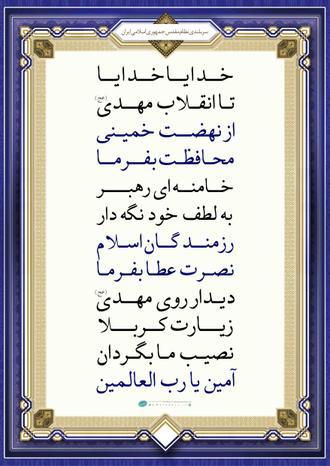 سربلندی نظام مقدس جمهوری اسلامی ایران
خدایا خدایا
تا انقلاب مهدی (عج)
از نهضت خمینی
محافظت بفرما
خامنه‌ای رهبر
به لطف خود نگه دار
رزمندگان اسلام
نصرت عطا بفرما
دیدار روی مهدی (عج)
زیارت کربلا
نصیب ما بگردان
آمین یا رب العالمین